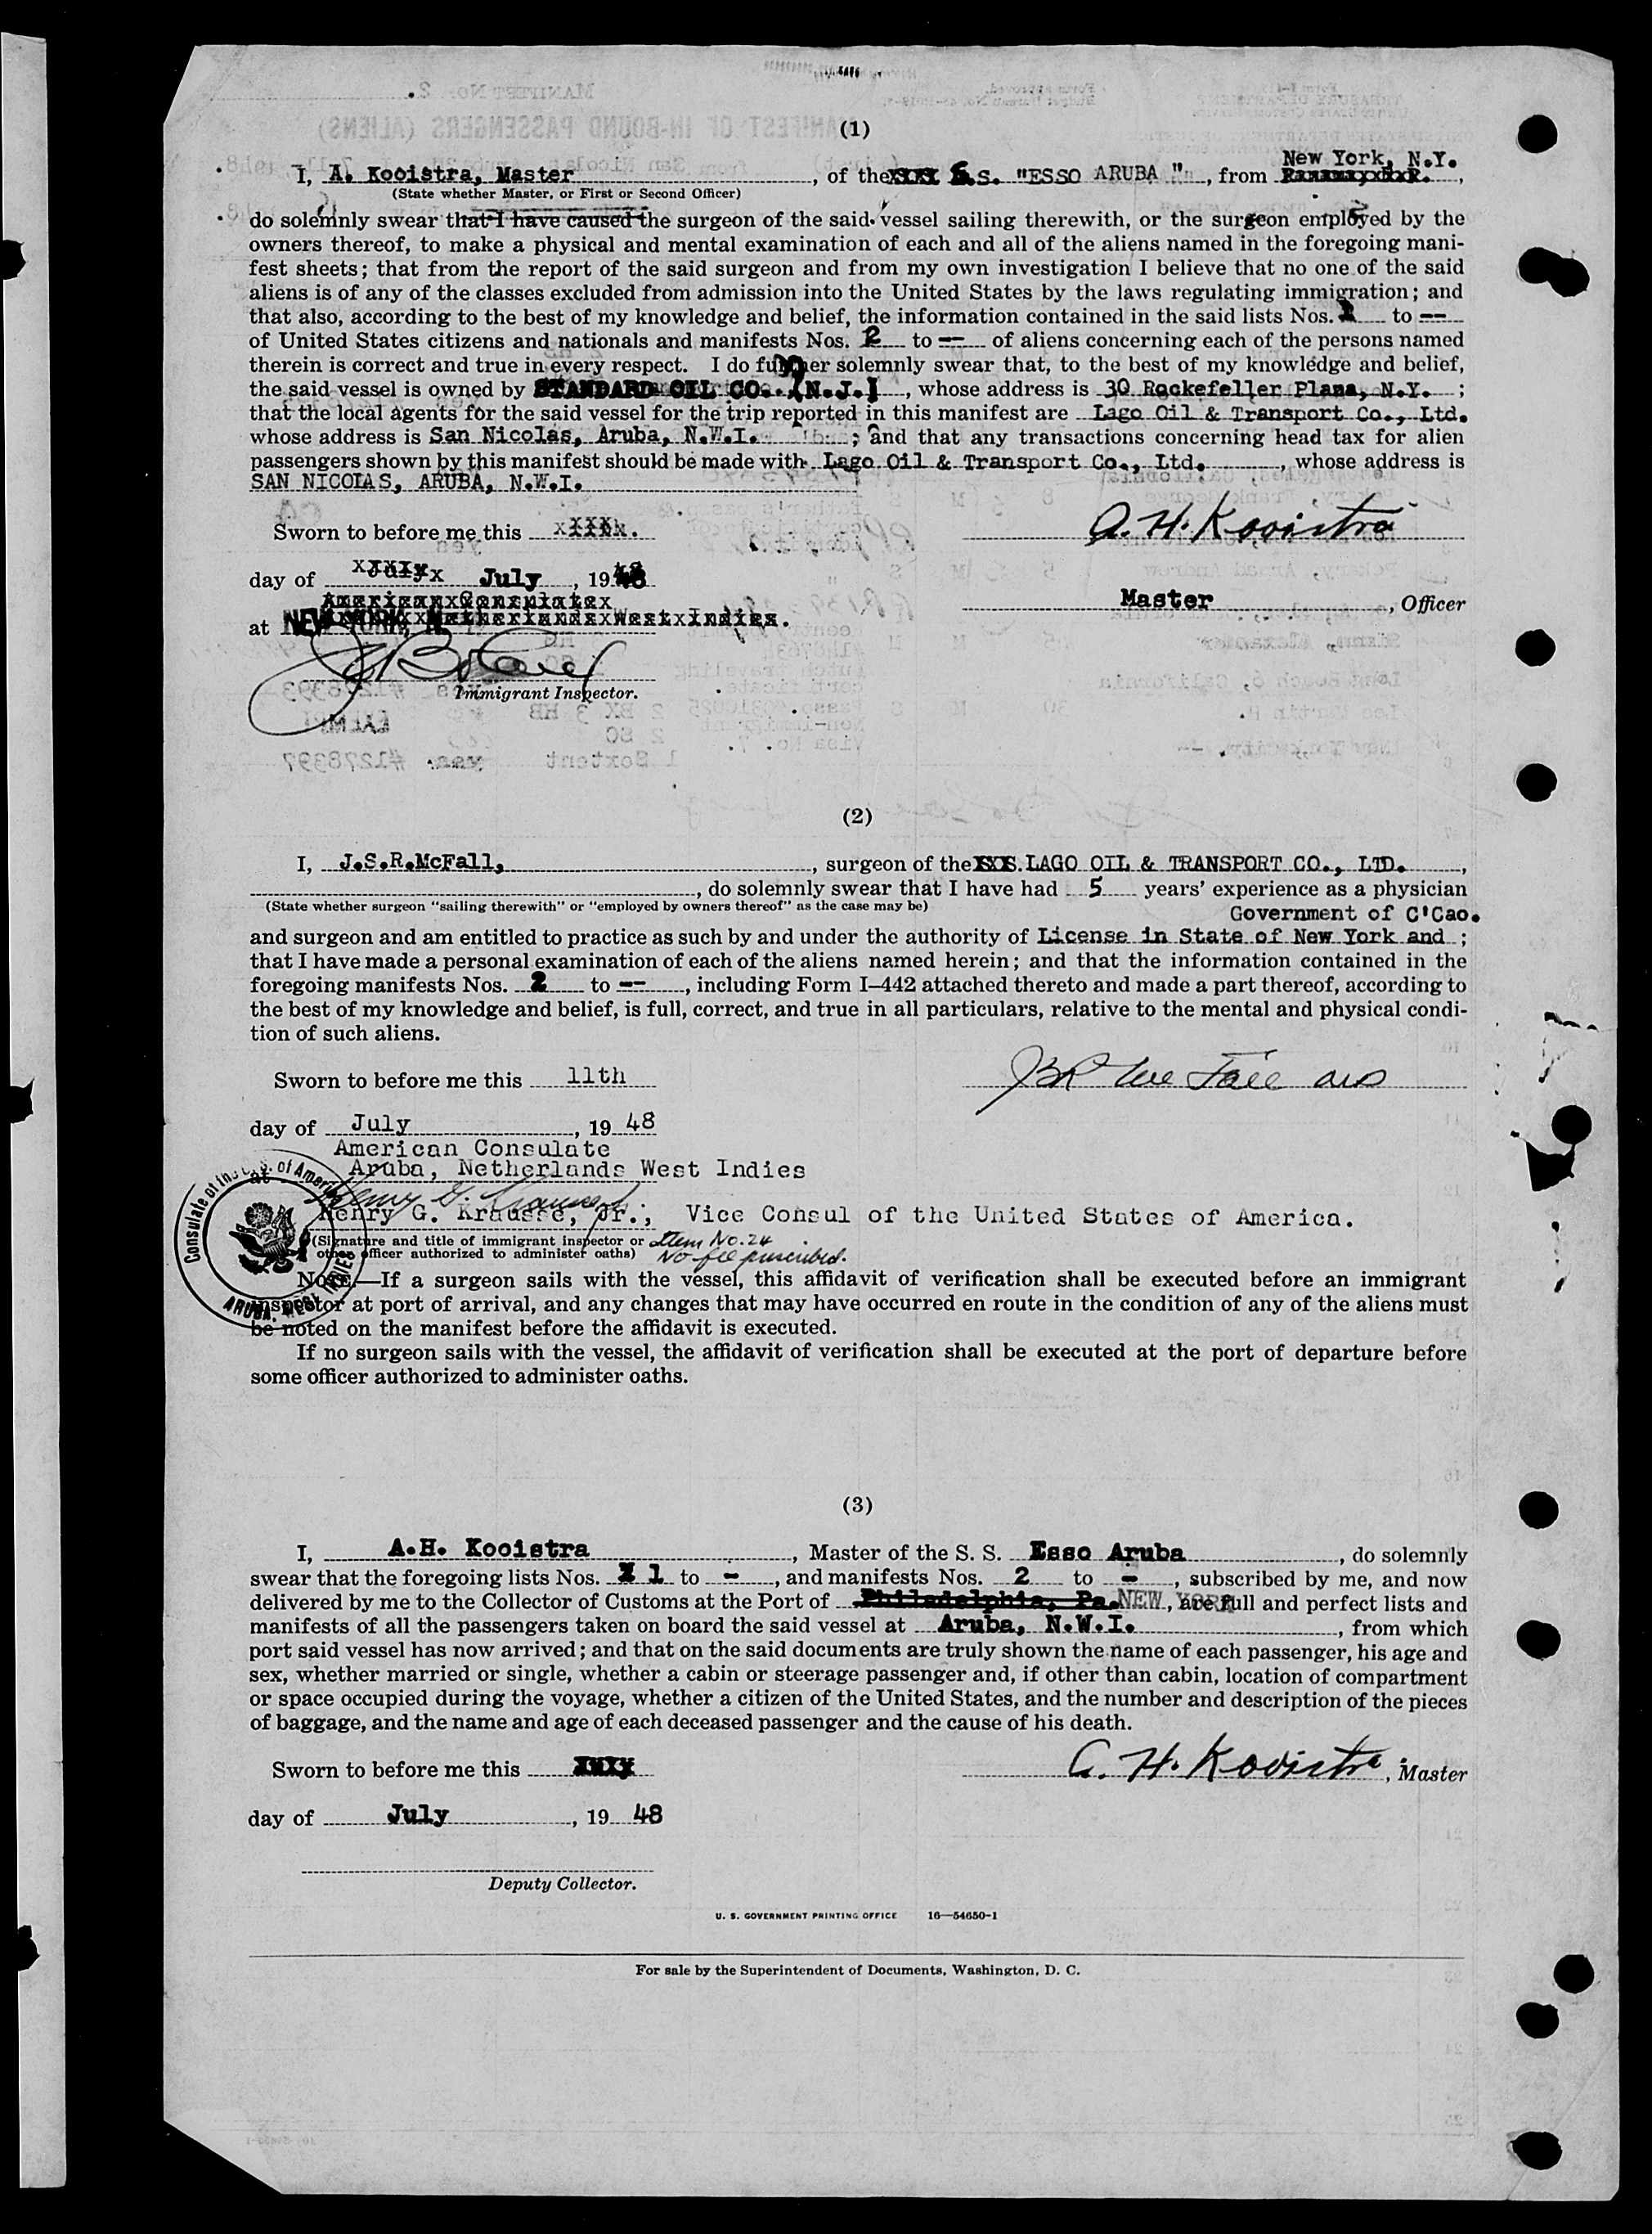 (1)
I, A. Kooistra, Master, of the S.S. "ESSO ARUBA", from New York, N.Y.,
(State whether Master, or First or Second Officer)
do solemnly swear that I have caused the surgeon of the said vessel sailing therewith, or the surgeon employed by the
owners thereof, to make a physical and mental examination of each and all of the aliens named in the foregoing mani-
fest sheets; that from the report of the said surgeon and from my own investigation I believe that no one of the said
aliens is of any of the classes excluded from admission into the United States by the laws regulating immigration; and
that also, according to the best of my knowledge and belief, the information contained in the said lists Nos. 1 to --
of United States citizens and nationals and manifests Nos. 2 to -- of aliens concerning each of the persons named
therein is correct and true in every respect. I do further solemnly swear that, to the best of my knowledge and belief,
the said vessel is owned by STANDARD OIL CO. (N.J.), whose address is 30 Rockefeller Plaza, N.Y. ;
that the local agents for the said vessel for the trip reported in this manifest are Lago Oil & Transport Co., Ltd.
whose address is San Nicolas, Aruba, N.W.I. ; and that any transactions concerning head tax for alien
passengers shown by this manifest should be made with Lago Oil & Transport Co., Ltd., whose address is
SAN NICOLAS, ARUBA, N.W.I.
Sworn to before me this
A. H. Kooistra
day of July, 1948
Master, Officer
American Consulate
at NEW YORK, N. Netherlands West Indies.
Immigrant Inspector.
(2)
I, J.S.R.McFall, surgeon of the S.S. LAGO OIL & TRANSPORT CO., LTD.,
, do solemnly swear that I have had 5 years' experience as a physician
(State whether surgeon "sailing therewith" or "employed by owners thereof" as the case may be)
Government of C'Cao.
and surgeon and am entitled to practice as such by and under the authority of License in State of New York and ;
that I have made a personal examination of each of the aliens named herein; and that the information contained in the
foregoing manifests Nos. 2 to --, including Form I–442 attached thereto and made a part thereof, according to
the best of my knowledge and belief, is full, correct, and true in all particulars, relative to the mental and physical condi-
tion of such aliens.
Sworn to before me this 11th
day of July, 19 48
American Consulate
at Aruba, Netherlands West Indies
Henry G. Krausse, Jr., Vice Consul of the United States of America.
(Signature and title of immigrant inspector or
other officer authorized to administer oaths)
Item No. 24
No fee prescribed.
Consulate of the U.S. of America
ARUBA, WEST INDIES
NOTE.—If a surgeon sails with the vessel, this affidavit of verification shall be executed before an immigrant
inspector at port of arrival, and any changes that may have occurred en route in the condition of any of the aliens must
be noted on the manifest before the affidavit is executed.
If no surgeon sails with the vessel, the affidavit of verification shall be executed at the port of departure before
some officer authorized to administer oaths.
(3)
I, A.H. Kooistra, Master of the S. S. Esso Aruba, do solemnly
swear that the foregoing lists Nos. 1 to -, and manifests Nos. 2 to -, subscribed by me, and now
delivered by me to the Collector of Customs at the Port of Philadelphia, Pa. NEW YORK, are full and perfect lists and
manifests of all the passengers taken on board the said vessel at Aruba, N.W.I., from which
port said vessel has now arrived; and that on the said documents are truly shown the name of each passenger, his age and
sex, whether married or single, whether a cabin or steerage passenger and, if other than cabin, location of compartment
or space occupied during the voyage, whether a citizen of the United States, and the number and description of the pieces
of baggage, and the name and age of each deceased passenger and the cause of his death.
Sworn to before me this
A. H. Kooistra, Master
day of July, 19 48
Deputy Collector.
U. S. GOVERNMENT PRINTING OFFICE 16—54650-1
For sale by the Superintendent of Documents, Washington, D. C.